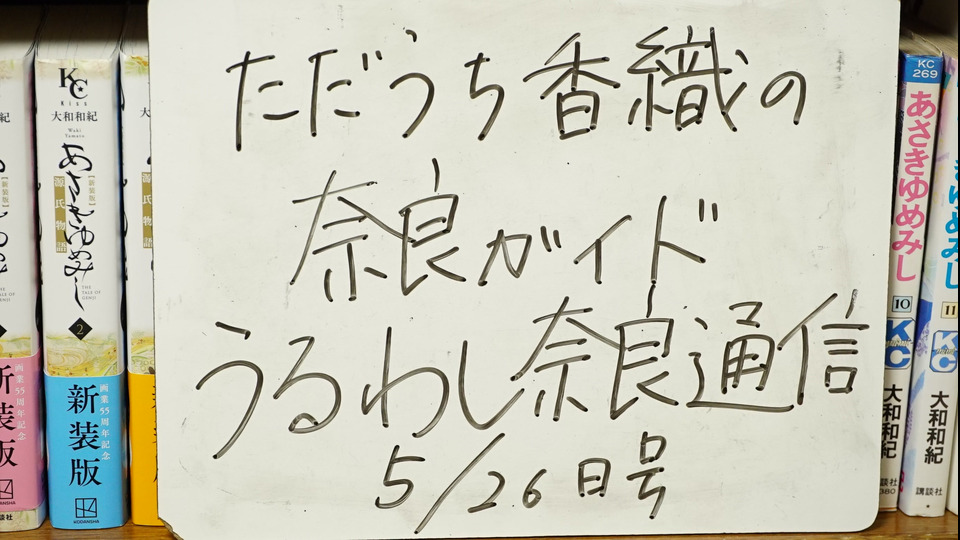 ただうち香織の
奈良ガイド
うるわし奈良通信
5/26日号
紀
KC
Kiss
大和和紀
Waki Yamato
あさきゆめみし
新装版
源氏物語
THE TALE OF GENJI
2
画業55周年記念
新装版
KODANSHA
大
KC
269
あさきゆめみし
10
KC
大和和紀
講談社
380
きゆめみし
11
KC
大和和紀
講談社
画業55周年記念
新装版
談社